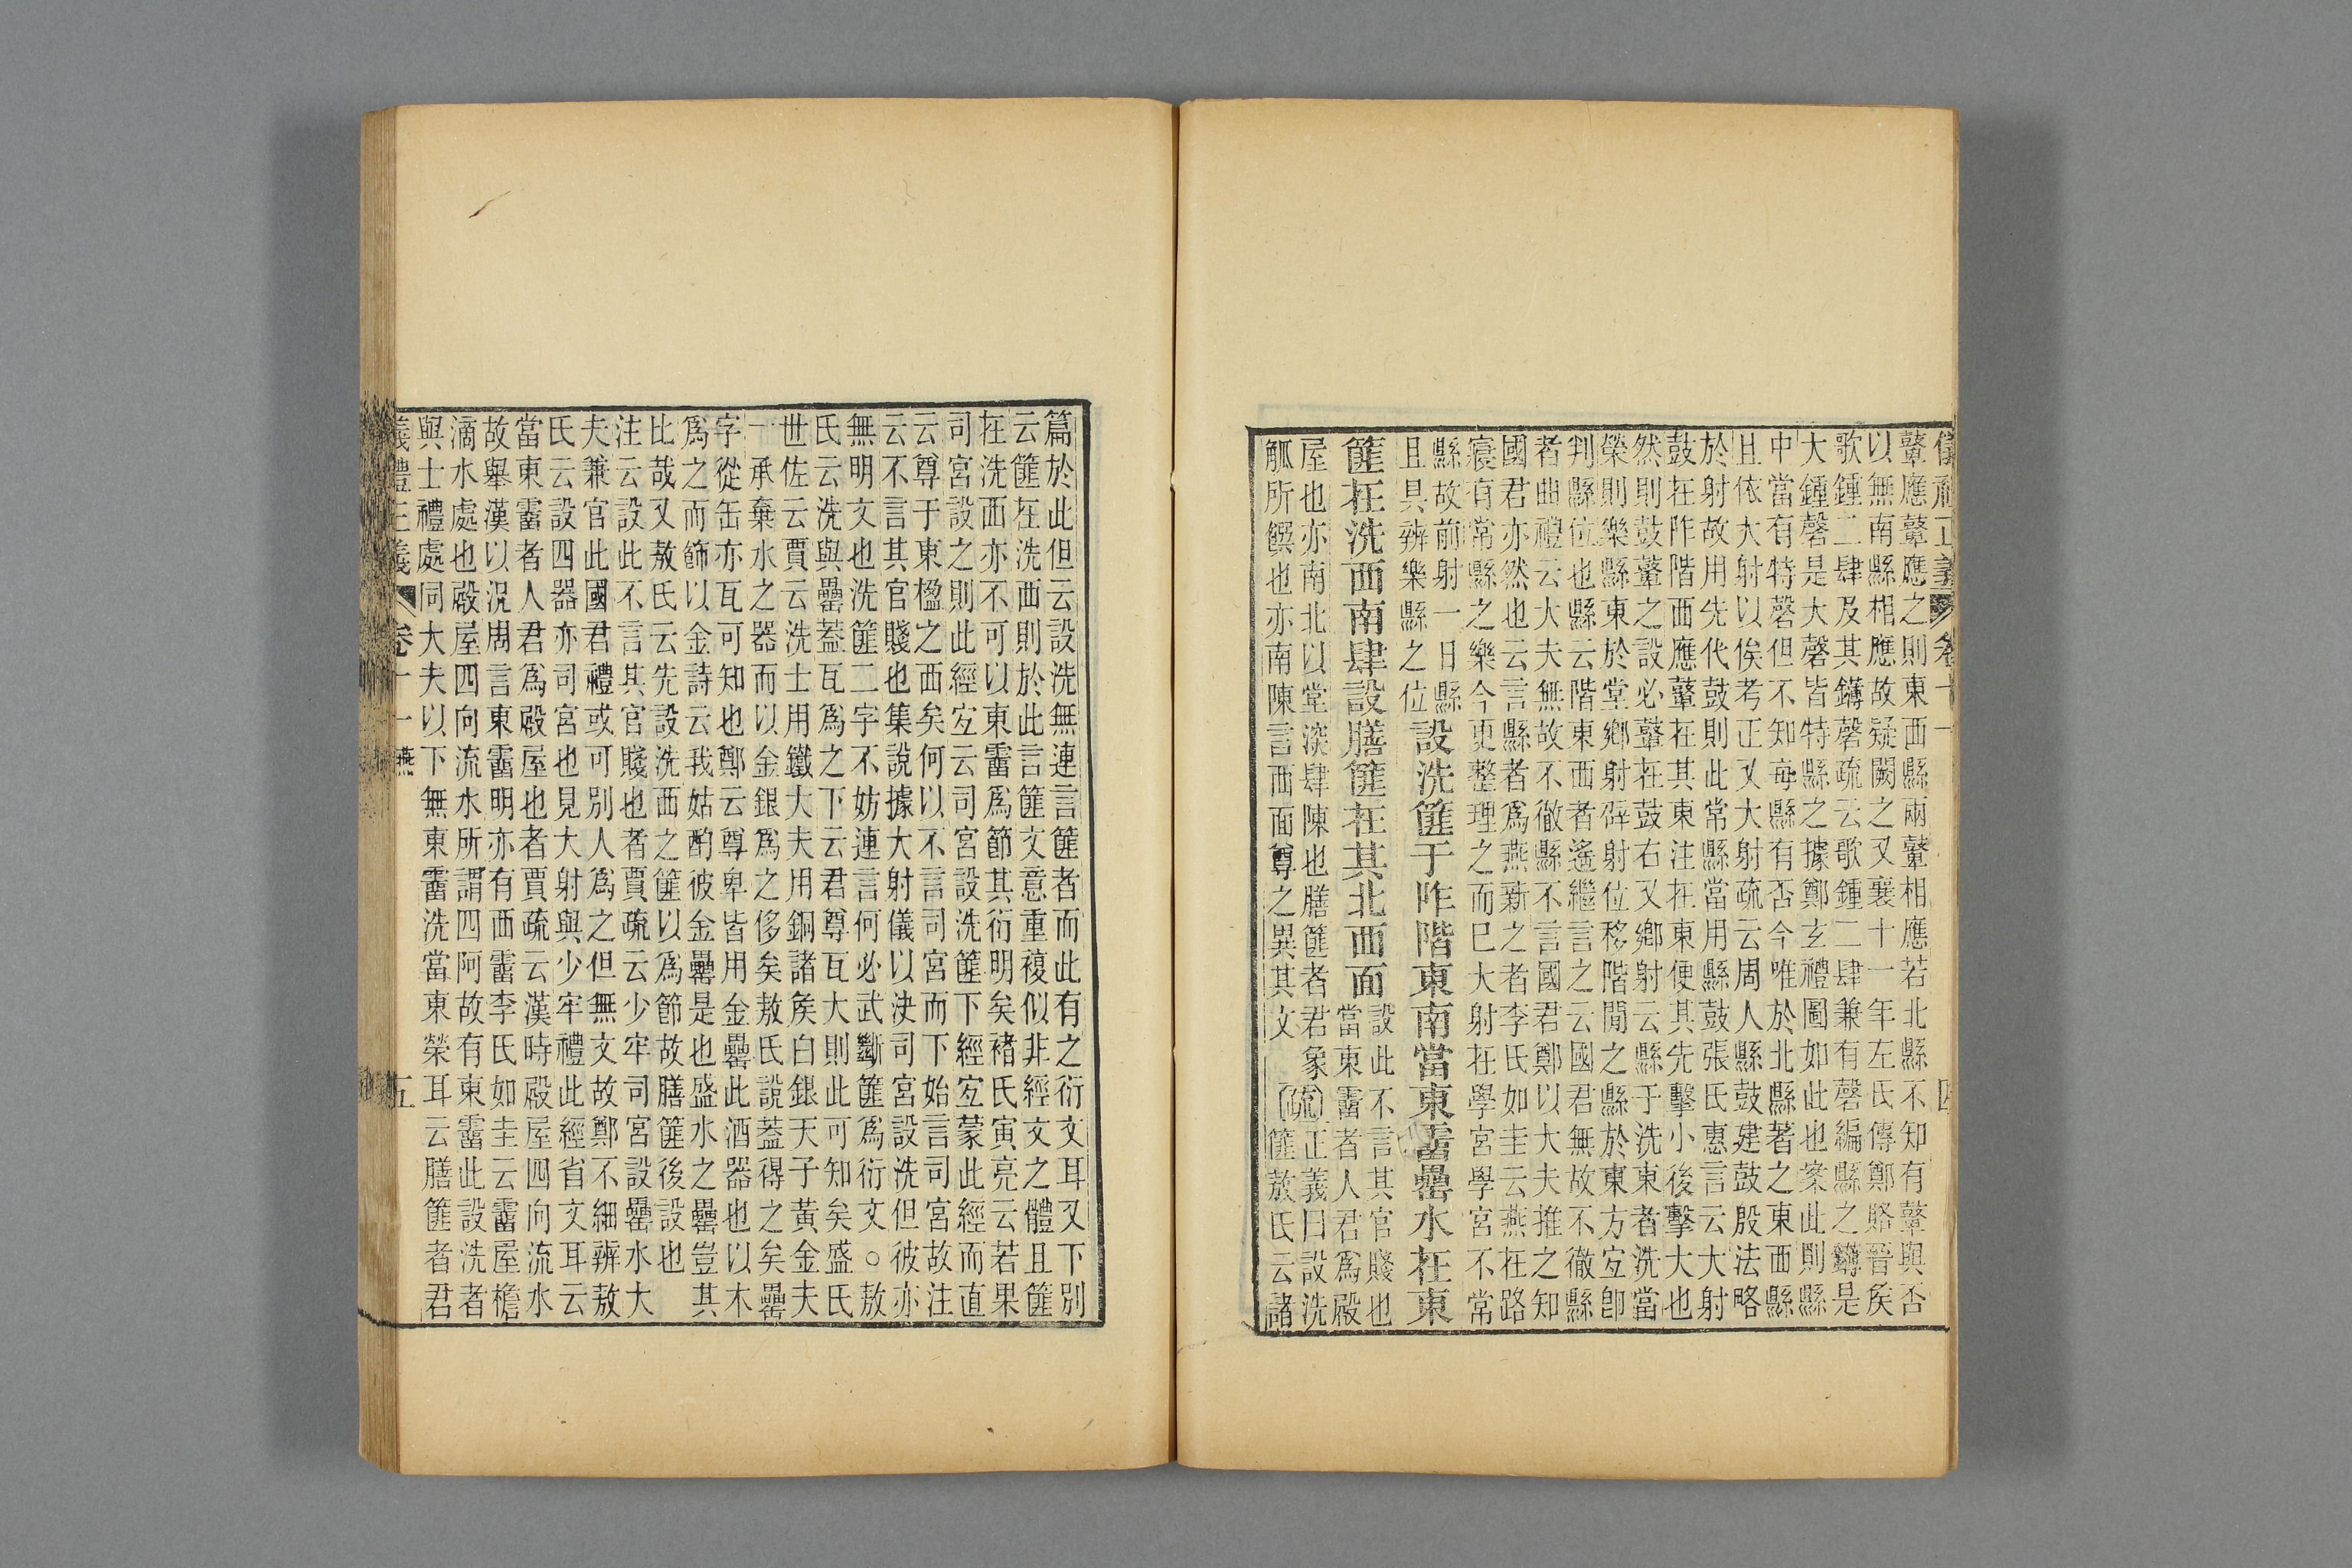 儀禮正義 卷十一 四
鼙應鼙應之則東西縣兩鼙相應若北縣不知有鼙與否
以無南縣相應故疑闕之又襄十一年左氏傳鄭賂晉矦
歌鍾二肆及其鏄磬疏云歌鍾二肆兼有磬編縣之鏄是
大鍾磬是大磬皆特縣之據鄭玄禮圖如此也案此則縣
中當有特磬但不知每縣有否今唯於北縣著之東西縣
且依大射以俟考正又大射疏云周人縣鼓建鼓殷法略
於射故用先代鼓則此常縣當用縣鼓張氏惠言云大射
鼓在阼階西應鼙在其東注在東便其先擊小後擊大也
然則鼓鼙之設必鼙在鼓右又鄉射云縣于洗東者洗當
榮則樂縣東於堂鄉射辟射位移階閒之縣於東方宜卽
判縣位也縣云階東西者遙繼言之云國君無故不徹縣
者曲禮云大夫無故不徹縣不言國君鄭以大夫推之知
國君亦然也云言縣者爲燕新之者李氏如圭云燕在路
寢有常縣之樂今更整理之而已大射在學宮學宮不常
縣故前射一日縣
且具辨樂縣之位
設洗篚于阼階東南當東霤罍水在東
篚在洗西南肆設膳篚在其北西面
設此不言其官賤也
當東霤者人君爲殿
屋也亦南北以堂深肆陳也膳篚者君象
觚所饌也亦南陳言西面尊之異其文
疏
正義曰設洗
篚敖氏云諸
篇於此但云設洗無連言篚者而此有之衍文耳又下別
云篚在洗西則於此言篚文意重複似非經文之體且篚
在洗西亦不可以東霤爲節其衍明矣褚氏寅亮云若果
司宮設之則此經宜云司宮設洗篚下經宜蒙此經而直
云尊于東楹之西矣何以不言司宮而下始言司宮故注
云不言其官賤也集說據大射儀以決司宮設洗但彼亦
無明文也洗篚二字不妨連言何必武斷篚爲衍文○敖
氏云洗與罍蓋瓦爲之下云君尊瓦大則此可知矣盛氏
世佐云賈云洗士用鐵大夫用銅諸矦白銀天子黃金夫
一承棄水之器而以金銀爲之侈矣敖氏說蓋得之矣罍
字從缶亦瓦可知也鄭云尊卑皆用金罍此酒器也以木
爲之而飾以金詩云我姑酌彼金罍是也盛水之罍豈其
比哉又敖氏云先設洗西之篚以爲節故膳篚後設也
注云設此不言其官賤也者賈疏云少牢司宮設罍水大
夫兼官此國君禮或可別人爲之但無文故鄭不細辨敖
氏云設四器亦司宮也見大射與少牢禮此經省文耳云
當東霤者人君爲殿屋也者賈疏云漢時殿屋四向流水
故舉漢以況周言東霤明亦有西霤李氏如圭云霤屋檐
滴水處也殿屋四向流水所謂四阿故有東霤此設洗者
與士禮處同大夫以下無東霤洗當東榮耳云膳篚者君
儀禮正義 卷十一 燕 五